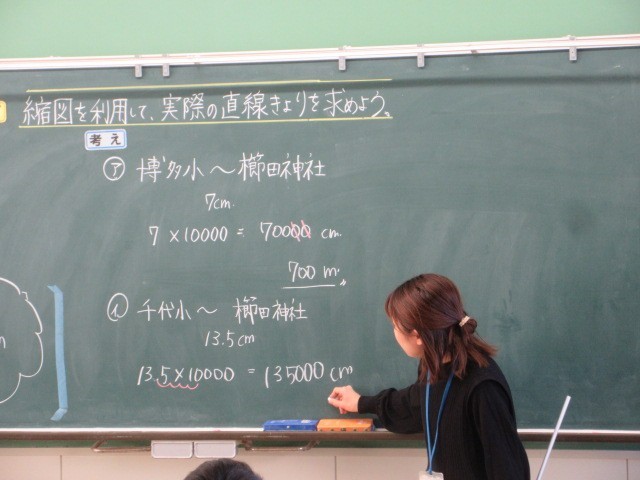 縮図を利用して、実際の直線きょりを求めよう。
考え
㋐ 博多小〜櫛田神社
7cm
7×10000=70000 cm
700 m
㋑ 千代小〜櫛田神社
13.5cm
13.5×10000=135000cm